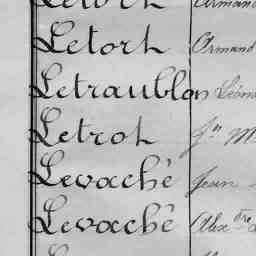 Letort Armand
Letort Armand
Letraublon Léon
Letrot Jn M
Levaché Jean
Levaché Alexdre